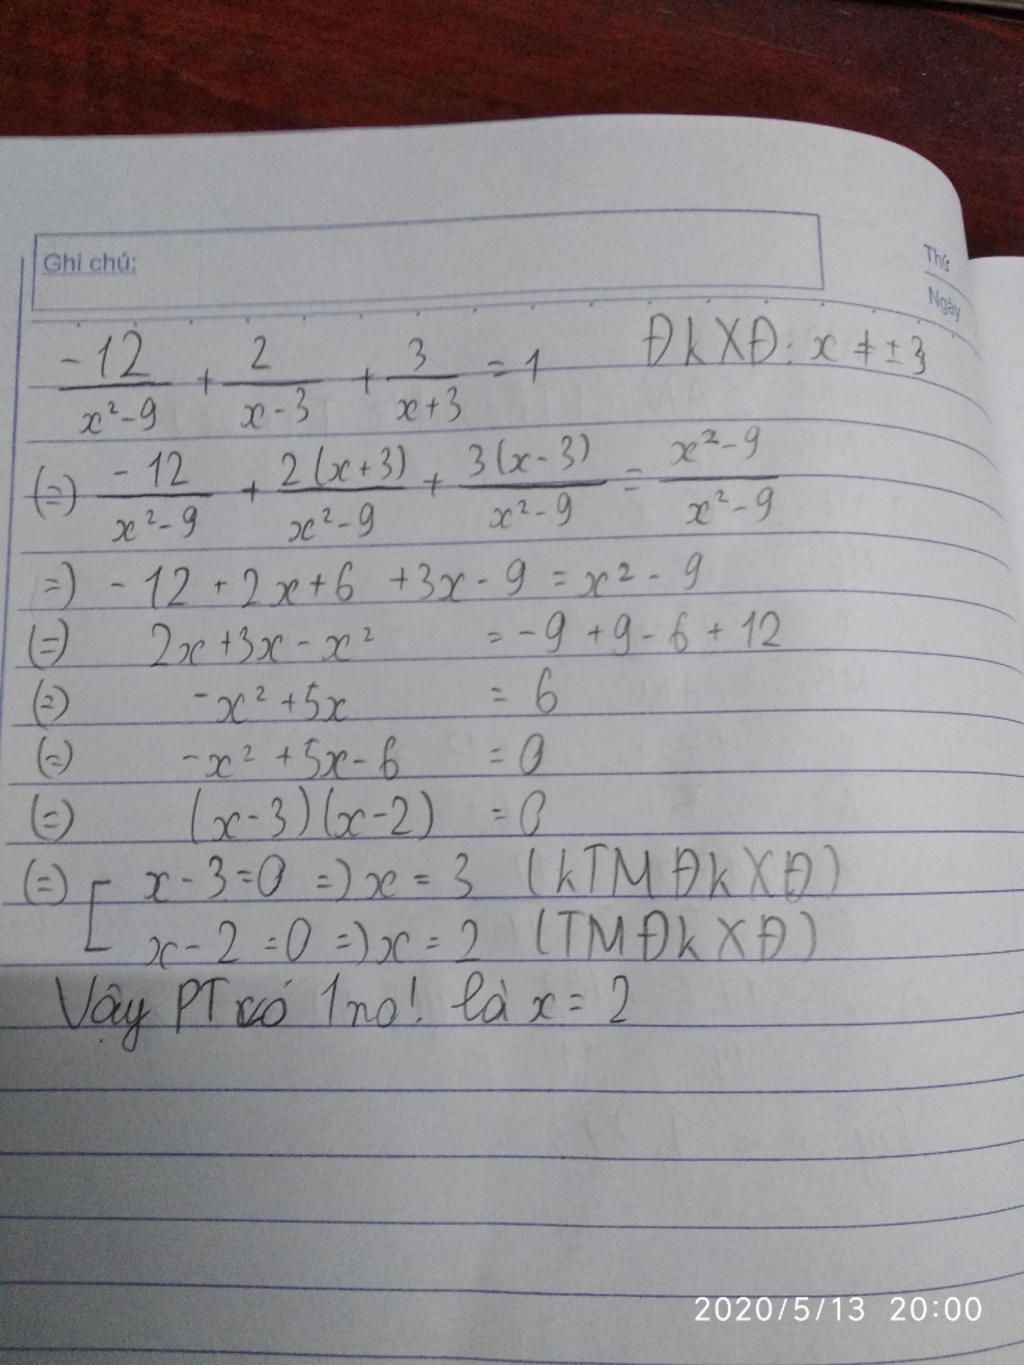 Ghi chú:
Thứ
Ngày
-12/(x²-9) + 2/(x-3) + 3/(x+3) = 1 ĐkXĐ: x ≠ ±3
(=) -12/(x²-9) + 2(x+3)/(x²-9) + 3(x-3)/(x²-9) = (x²-9)/(x²-9)
=) -12+2x+6 +3x-9 = x²-9
(=) 2x+3x-x² = -9+9-6+12
(=) -x²+5x = 6
(=) -x²+5x-6 = 0
(=) (x-3)(x-2) = 0
(=) [ x-3=0 =) x=3 (kTMĐkXĐ)
x-2=0 =) x=2 (TMĐkXĐ)
Vậy PT có 1 no! là x=2
2020/5/13 20:00